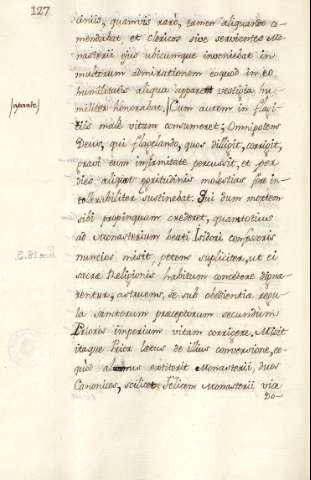 127
cimiis, quamvis raro, tamen aliquando co-
mendabat, et clericos sive servientes Mo-
nasterii ejus ubicumque inveniebat in
multorum admirationem eoquod in eo
humilitatis aliqua apparent vestigia hu-
militer honorabat. Cum autem in flagi-
tiis male vitam consumeret, Omnipotens
Deus, qui flagelando, quos diligit, corrigit,
gravi eum infirmitate percussit, et per
dies aliquot egritudinis molestias fere in-
tollerabiliter sustinebat. Qui dum mortem
sibi propinquam crederet, quantotius
ad Monasterium beati Isidori confessoris
nuncios misit, petens supliciter, ut ei
sacre Religionis habitum concedere digna-
rentur, astruens, se sub obedientia regu-
la sanctorum preceptorum secundum
Prioris imperium vitam corrigere. Misit
itaque Prior letus de illius conversione, eo-
quod alumnus extiterit Monasterii, duos
Canonicos, scilicet Felicem Monasterii vice
Do-